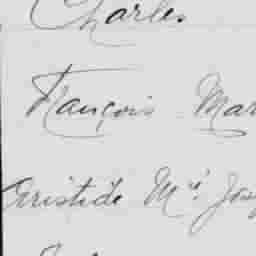 Charles
François Mar
Aristide Mie Jos